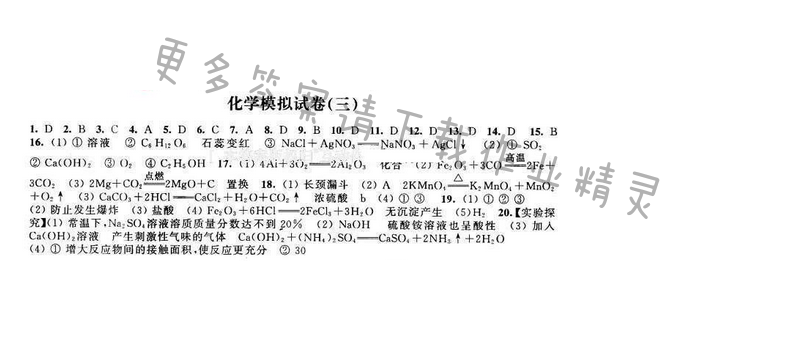 化学模拟试卷(三)
1. D 2. B 3. C 4. A 5. D 6. C 7. A 8. D 9. B 10. D 11. D 12. D 13. D 14. D 15. B
16. (1) ① 溶液 ② C₆H₁₂O₆ 石蕊变红 ③ NaCl+AgNO₃══NaNO₃+AgCl↓ (2) ① SO₂
② Ca(OH)₂ ③ O₂ ④ C₂H₅OH 17. (1) 4Al+3O₂══2Al₂O₃ 化合 (2) Fe₂O₃+3CO══高温══2Fe+
3CO₂ (3) 2Mg+CO₂══点燃══2MgO+C 置换 18. (1) 长颈漏斗 (2) A 2KMnO₄══△══K₂MnO₄+MnO₂
+O₂↑ (3) CaCO₃+2HCl══CaCl₂+H₂O+CO₂↑ 浓硫酸 b (4) ① ③ 19. (1) ① ② ③
(2) 防止发生爆炸 (3) 盐酸 (4) Fe₂O₃+6HCl══2FeCl₃+3H₂O 无沉淀产生 (5) H₂ 20.【实验探
究】(1) 常温下,Na₂SO₄溶液溶质质量分数达不到20% (2) NaOH 硫酸铵溶液也呈酸性 (3) 加入
Ca(OH)₂溶液 产生刺激性气味的气体 Ca(OH)₂+(NH₄)₂SO₄══CaSO₄+2NH₃↑+2H₂O
(4) ① 增大反应物间的接触面积,使反应更充分 ② 30
更多答案请下载作业精灵